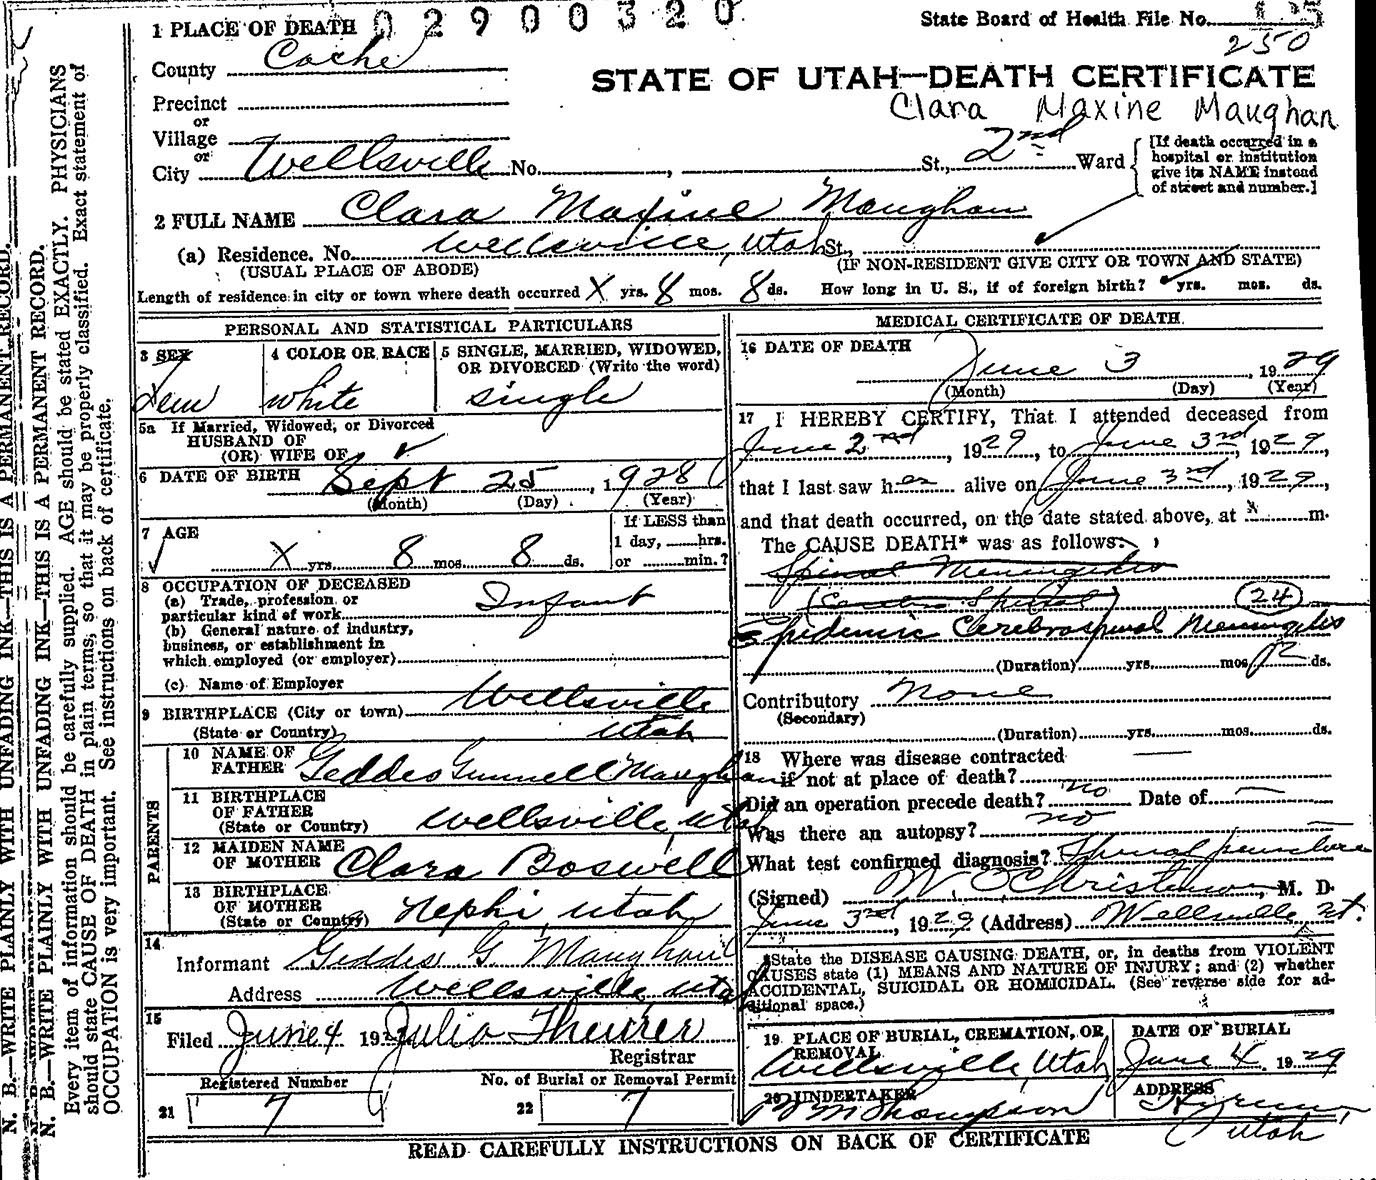 02900320
State Board of Health File No.
250
1 PLACE OF DEATH
County Cache
STATE OF UTAH—DEATH CERTIFICATE
Clara Maxine Maughan
Precinct
or
Village
or
City Wellsville No. , St., 2nd Ward
[If death occurred in a
hospital or institution
give its NAME instead
of street and number.]
2 FULL NAME Clara Maxine Maughan
(a) Residence. No. Wellsville, Utah St.,
(USUAL PLACE OF ABODE) (IF NON-RESIDENT GIVE CITY OR TOWN AND STATE)
Length of residence in city or town where death occurred X yrs. 8 mos. 8 ds. How long in U. S., if of foreign birth? yrs. mos. ds.
PERSONAL AND STATISTICAL PARTICULARS
3 SEX
Fem
4 COLOR OR RACE
white
5 SINGLE, MARRIED, WIDOWED,
OR DIVORCED (Write the word)
single
5a If Married, Widowed, or Divorced
HUSBAND OF
(OR) WIFE OF
6 DATE OF BIRTH Sept 25, 1928
(Month) (Day) (Year)
7 AGE
X yrs. 8 mos. 8 ds.
If LESS than
1 day, hrs.
or min.?
8 OCCUPATION OF DECEASED
(a) Trade, profession or
particular kind of work Infant
(b) General nature of industry,
business, or establishment in
which employed (or employer)
(c) Name of Employer
9 BIRTHPLACE (City or town) Wellsville
(State or Country) Utah
PARENTS
10 NAME OF
FATHER Geddes Gunnell Maughan
11 BIRTHPLACE
OF FATHER
(State or Country) Wellsville, Utah
12 MAIDEN NAME
OF MOTHER Clara Boswell
13 BIRTHPLACE
OF MOTHER
(State or Country) Nephi, Utah
14
Informant Geddes G. Maughan
Address Wellsville Utah
15
Filed June 4 192 Julia Theurer
Registrar
Registered Number
21 7
No. of Burial or Removal Permit
22 7
MEDICAL CERTIFICATE OF DEATH.
16 DATE OF DEATH
June 3, 1929
(Month) (Day) (Year)
17 I HEREBY CERTIFY, That I attended deceased from
June 2nd, 1929, to June 3rd, 1929,
that I last saw her alive on June 3rd, 1929,
and that death occurred, on the date stated above, at x m.
The CAUSE DEATH* was as follows:
Spinal Meningitis
(Cerebro Spinal) 24
Epidemic Cerebrospinal Meningitis
(Duration) yrs. mos. 12 ds.
Contributory None
(Secondary)
(Duration) yrs. mos. ds.
18 Where was disease contracted
if not at place of death?
Did an operation precede death? no Date of
Was there an autopsy? no
What test confirmed diagnosis? Spinal puncture
(Signed) W. O. Christenson, M. D.
June 3rd, 1929 (Address) Wellsville Ut.
*State the DISEASE CAUSING DEATH, or, in deaths from VIOLENT
CAUSES state (1) MEANS AND NATURE OF INJURY; and (2) whether
ACCIDENTAL, SUICIDAL OR HOMICIDAL. (See reverse side for ad-
ditional space.)
19 PLACE OF BURIAL, CREMATION, OR
REMOVAL
Wellsville, Utah
DATE OF BURIAL
June 4, 1929
20 UNDERTAKER
Thompson
ADDRESS
Hyrum
Utah
READ CAREFULLY INSTRUCTIONS ON BACK OF CERTIFICATE
N. B.—WRITE PLAINLY WITH UNFADING INK—THIS IS A PERMANENT RECORD.
N. B.—WRITE PLAINLY WITH UNFADING INK—THIS IS A PERMANENT RECORD.
Every item of information should be carefully supplied. AGE should be stated EXACTLY. PHYSICIANS
should state CAUSE OF DEATH in plain terms, so that it may be properly classified. Exact statement of
OCCUPATION is very important. See instructions on back of certificate.